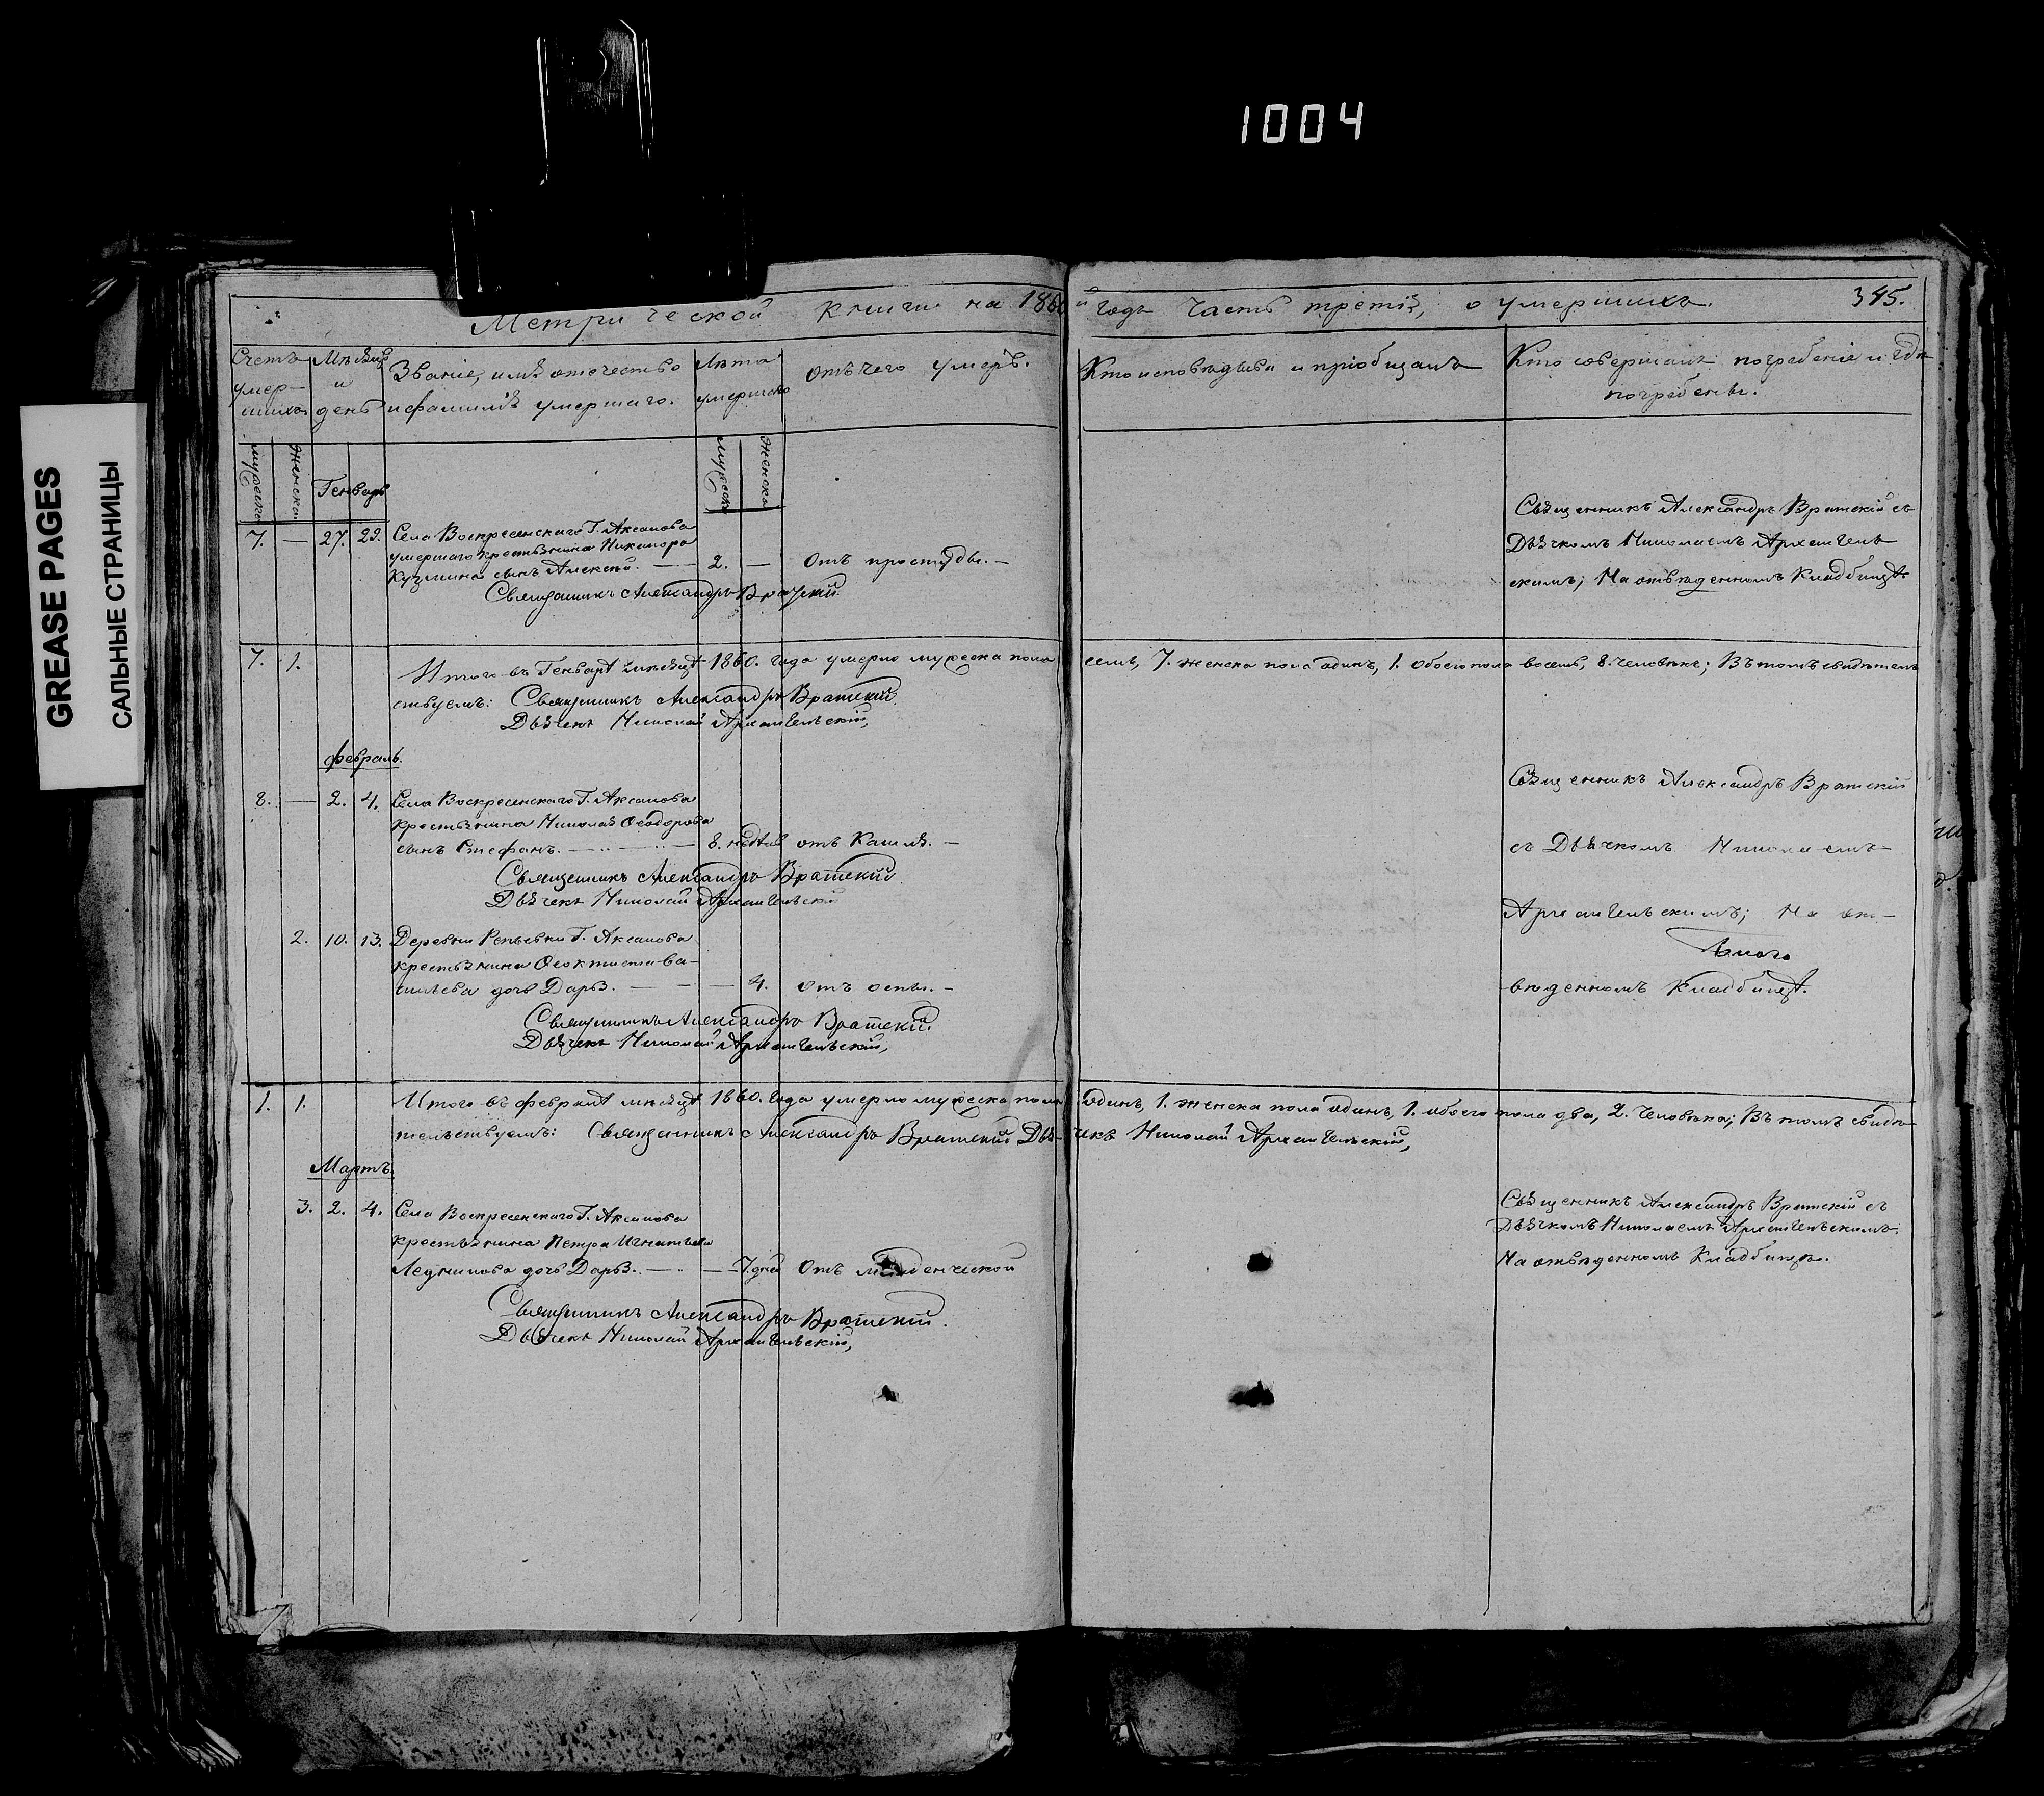 1004
GREASE PAGES
САЛЬНЫЕ СТРАНИЦЫ
Метрической книги на 1860 й годъ Часть третія, о умершихъ. 345.
Счетъ умер-шихъ.
Мѣсяцъ и день
Званіе, имя отечество и фамилія умершаго.
Лѣта умершаго
Отъ чего умеръ.
Кто исповѣдывалъ и пріобщалъ
Кто совершалъ погребеніе и гдѣ погребены.
мужеска
женска.
Генварь
мужеска
женска
7. — 27. 29. Села Воскресенскаго Г. Аксакова
умершаго крестьянина Никанора
Кузмина сынъ Алексѣй. — 2. — Отъ простуды. —
Священникъ Александръ Вратскій
Священникъ Александръ Вратскій съ
Дьячкомъ Николаемъ Архангель
скимъ; На отведенномъ Кладбищѣ
7. 1. Итого въ Генварѣ мѣсяцѣ 1860. года умерло мужеска пола семь, 7. женска пола одинъ, 1. обоего пола восемь, 8. человѣкъ; Въ томъ свидѣтель
ствуемъ: Священникъ Александръ Вратскій
Дьячекъ Николай Архангельскій,
Февраль.
8. — 2. 4. Села Воскресенскаго Г. Аксакова
крестьянина Николая Ѳеодорова
сынъ Стефанъ. — 8. недѣль отъ Кашля. —
Священникъ Александръ Вратскій
Дьячекъ Николай Архангельскій
Священникъ Александръ Вратскій
съ Дьячкомъ Николаемъ
Архангельскимъ; На от-
веденномъ Кладбищѣ.
2. 10. 13. Деревни Репьевки Г. Аксакова
крестьянина Ѳеоктиста Ва-
сильева дочь Дарья. — — 4. отъ оспы. —
Священникъ Александръ Вратскій
Дьячекъ Николай Архангельскій,
1. 1. Итого въ Февралѣ мѣсяцѣ 1860. года умерло мужеска пола одинъ, 1. женска пола одинъ, 1. обоего пола два, 2. человѣка; Въ томъ свидѣ-
тельствуемъ: Священникъ Александръ Вратскій Дья-чекъ Николай Архангельскій,
Мартъ.
3. 2. 4. Села Воскресенскаго Г. Аксакова
крестьянина Петра Игнатьева
дочь Дарья. — — 7. дней Отъ младенческой
Священникъ Александръ Вратскій.
Дьячекъ Николай Архангельскій,
Священникъ Александръ Вратскій съ
Дьячкомъ Николаемъ Архангельскимъ.
На отведенномъ Кладбищѣ.